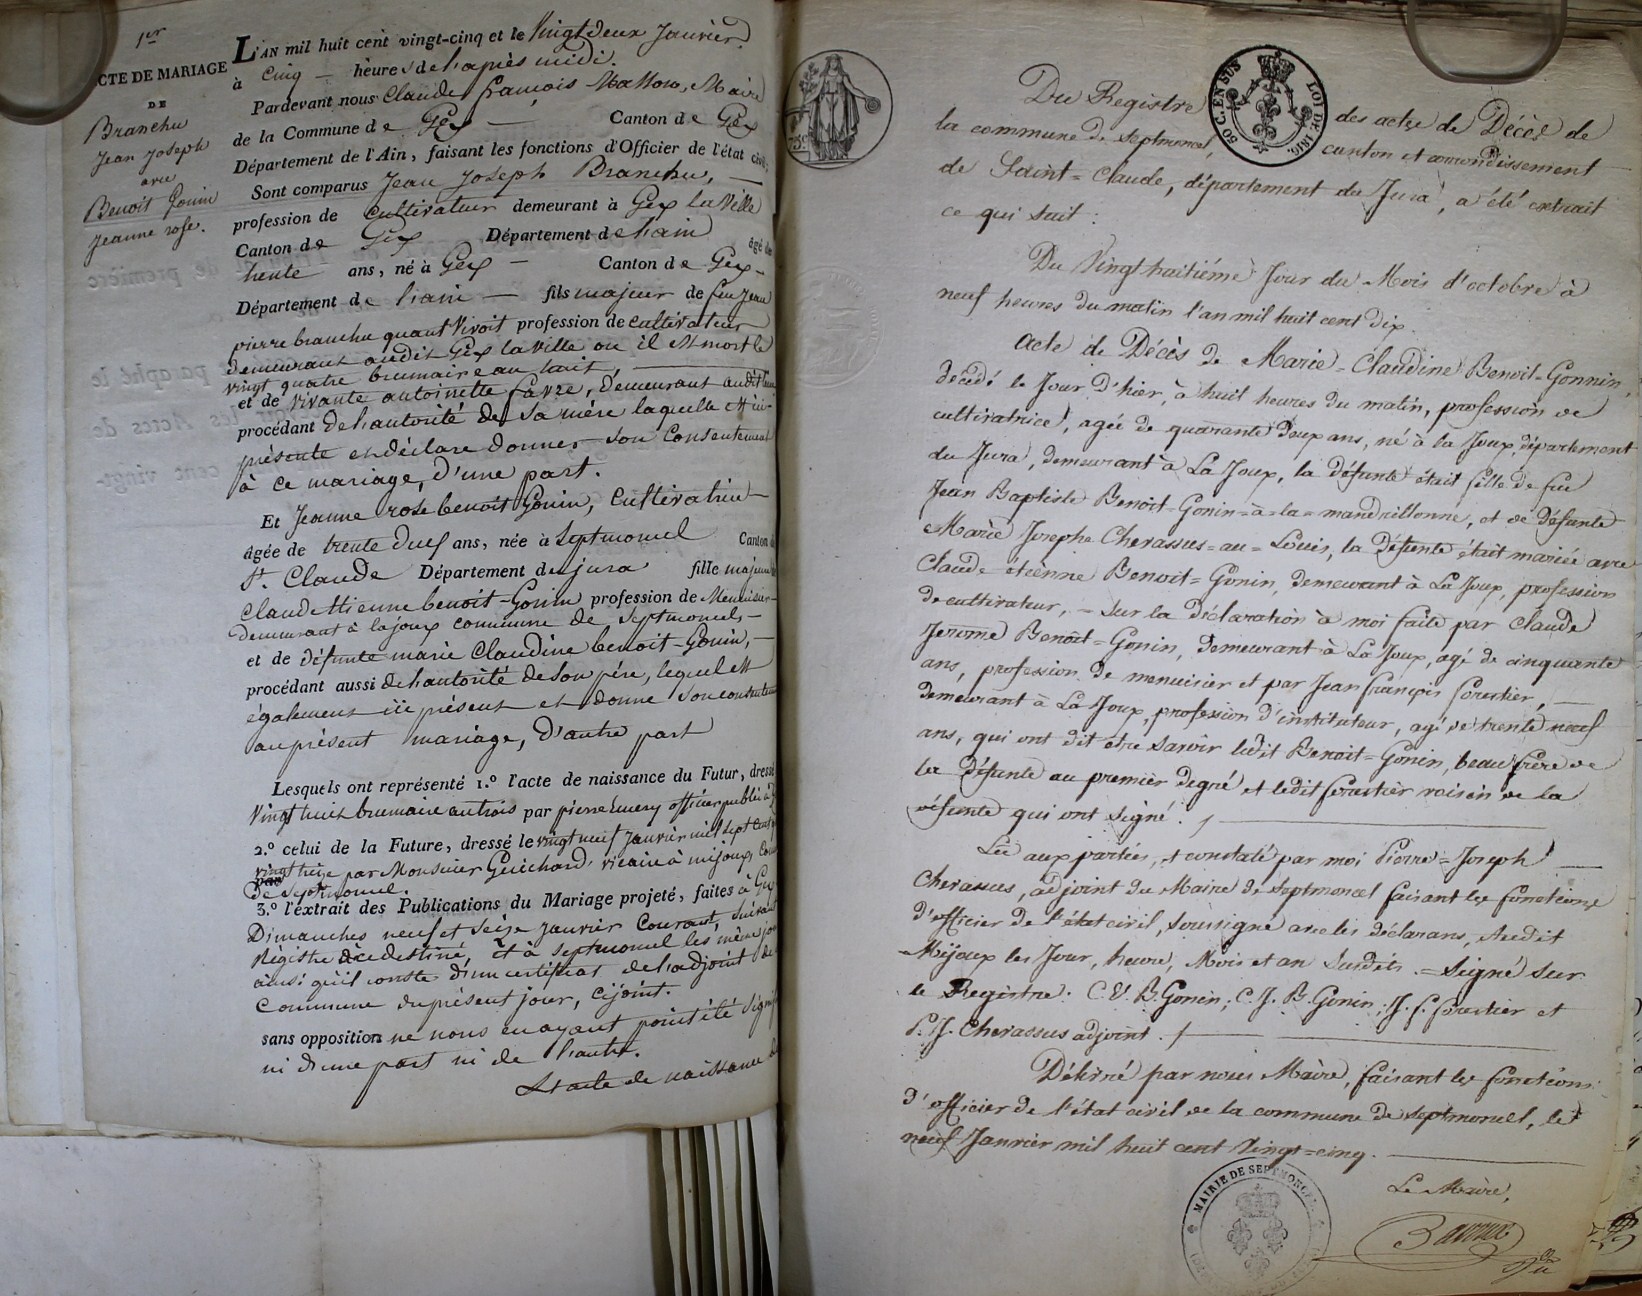 1er
CTE DE MARIAGE
DE
Branchu
Jean Joseph
avec
Benoit Gonin
Jeanne rose.
L'AN mil huit cent vingt-cinq et le Vingt deux Janvier.
à cinq — heures de l'après midi.
Pardevant nous Claude François Maire
de la Commune de Gex — Canton de Gex
Département de l'Ain, faisant les fonctions d'Officier de l'état civil.
Sont comparus Jean Joseph Branchu, —
profession de cultivateur demeurant à Gex la Ville
Canton de Gex Département de l'ain âgé de
trente ans, né à Gex — Canton de Gex —
Département de l'ain — fils majeur de feu Jean
pierre branchu quant Vivoit profession de cultivateur
demeurant audit Gex la Ville ou il est mort le
vingt quatre brumaire an huit, —
et de Vivante antoinette favre, demeurant audit
procédant de l'autorité de sa mère laquelle est ici
présente et déclare donner son Consentement
à ce mariage, d'une part.
Et Jeanne rose benoit Gonin, Cultivatrice
âgée de trente deux ans, née à Septmoncel Canton de
St. Claude Département du jura fille majeure de
Claude Etienne benoit-Gonin profession de Menuisier —
demeurant à lajoux commune de Septmoncel, —
et de défunte marie Claudine benoit-Gonin, —
procédant aussi de l'autorité de son père, lequel est
également ici présent et donne son consentement
au présent mariage, d'autre part
Lesquels ont représenté 1.º l'acte de naissance du Futur, dressé
Vingt huit brumaire an trois par pierre Emery officier public à
2.º celui de la Future, dressé le vingt neuf Janvier mil sept cent
vingt treize par Monsieur Guichard, vicaire à mijoux,
de Septmoncel.
3.º l'extrait des Publications du Mariage projeté, faites à Gex
Dimanches neuf et Seize Janvier Courant, suivant
Régistre à ce destiné, et à Septmoncel les même jour
ainsi qu'il conste d'un certificat de l'adjoint de
Commune du présent jour, cijoint.
sans opposition ne nous en ayant point été signifié
ni d'une part ni de l'autre.
L'acte de naissance de
80 C. EN SUS LOI DE 1816.
Du Registre des actes de Décès de
la commune de Septmoncel, canton et arrondissement
de Saint=Claude, département du Jura, a été extrait
ce qui suit :
Du Vingt huitième Jour du Mois d'octobre à
neuf heures du matin l'an mil huit cent dix.
Acte de Décès de Marie=Claudine Benoit=Gonnin,
décédé le Jour D'hier, à huit heures du matin, profession de
cultivatrice, agée de quarante Deux ans, né à la Joux, département
du Jura, demeurant à La Joux, la défunte était fille de feu
Jean Baptiste Benoit=Gonin=à=la=mandrillonne, et de défunte
Marie Josephe Chevassus=au=Louis, la Défunte était mariée avec
Claude étiènne Benoit=Gonin, demeurant à La Joux, profession
de cultivateur, — sur la Déclaration à moi faite par Claude
Jerome Benoit=Gonin, demeurant à La Joux, agé de cinquante
ans, profession de menuisier et par Jean françois forestier, —
demeurant à La Joux, profession d'instituteur, agé de trente neuf
ans, qui ont dit etre savoir ledit Benoit=Gonin, beau frère de
la Défunte au premier degré et ledit forestier voisin de la
défunte qui ont signé. /
Lû aux parties, et constaté par moi Pierre=Joseph —
Chevassus, adjoint du Maire de Septmoncel faisant les fonctions
d'officier de l'état civil, soussigné avec les déclarans, Audit
Mijoux les Jour, heure, Mois et an susdits. = Signé sur
le Registre. C. E. B. Gonin; C. J. B. Gonin; J. f. forestier et
P. J. Chevassus adjoint. /
Délivré par nous Maire, faisant les fonctions
d'officier de l'état civil de la commune de Septmoncel, le
neuf Janvier mil huit cent Vingt=cinq. —
MAIRIE DE SEPTMONCEL
Le Maire,